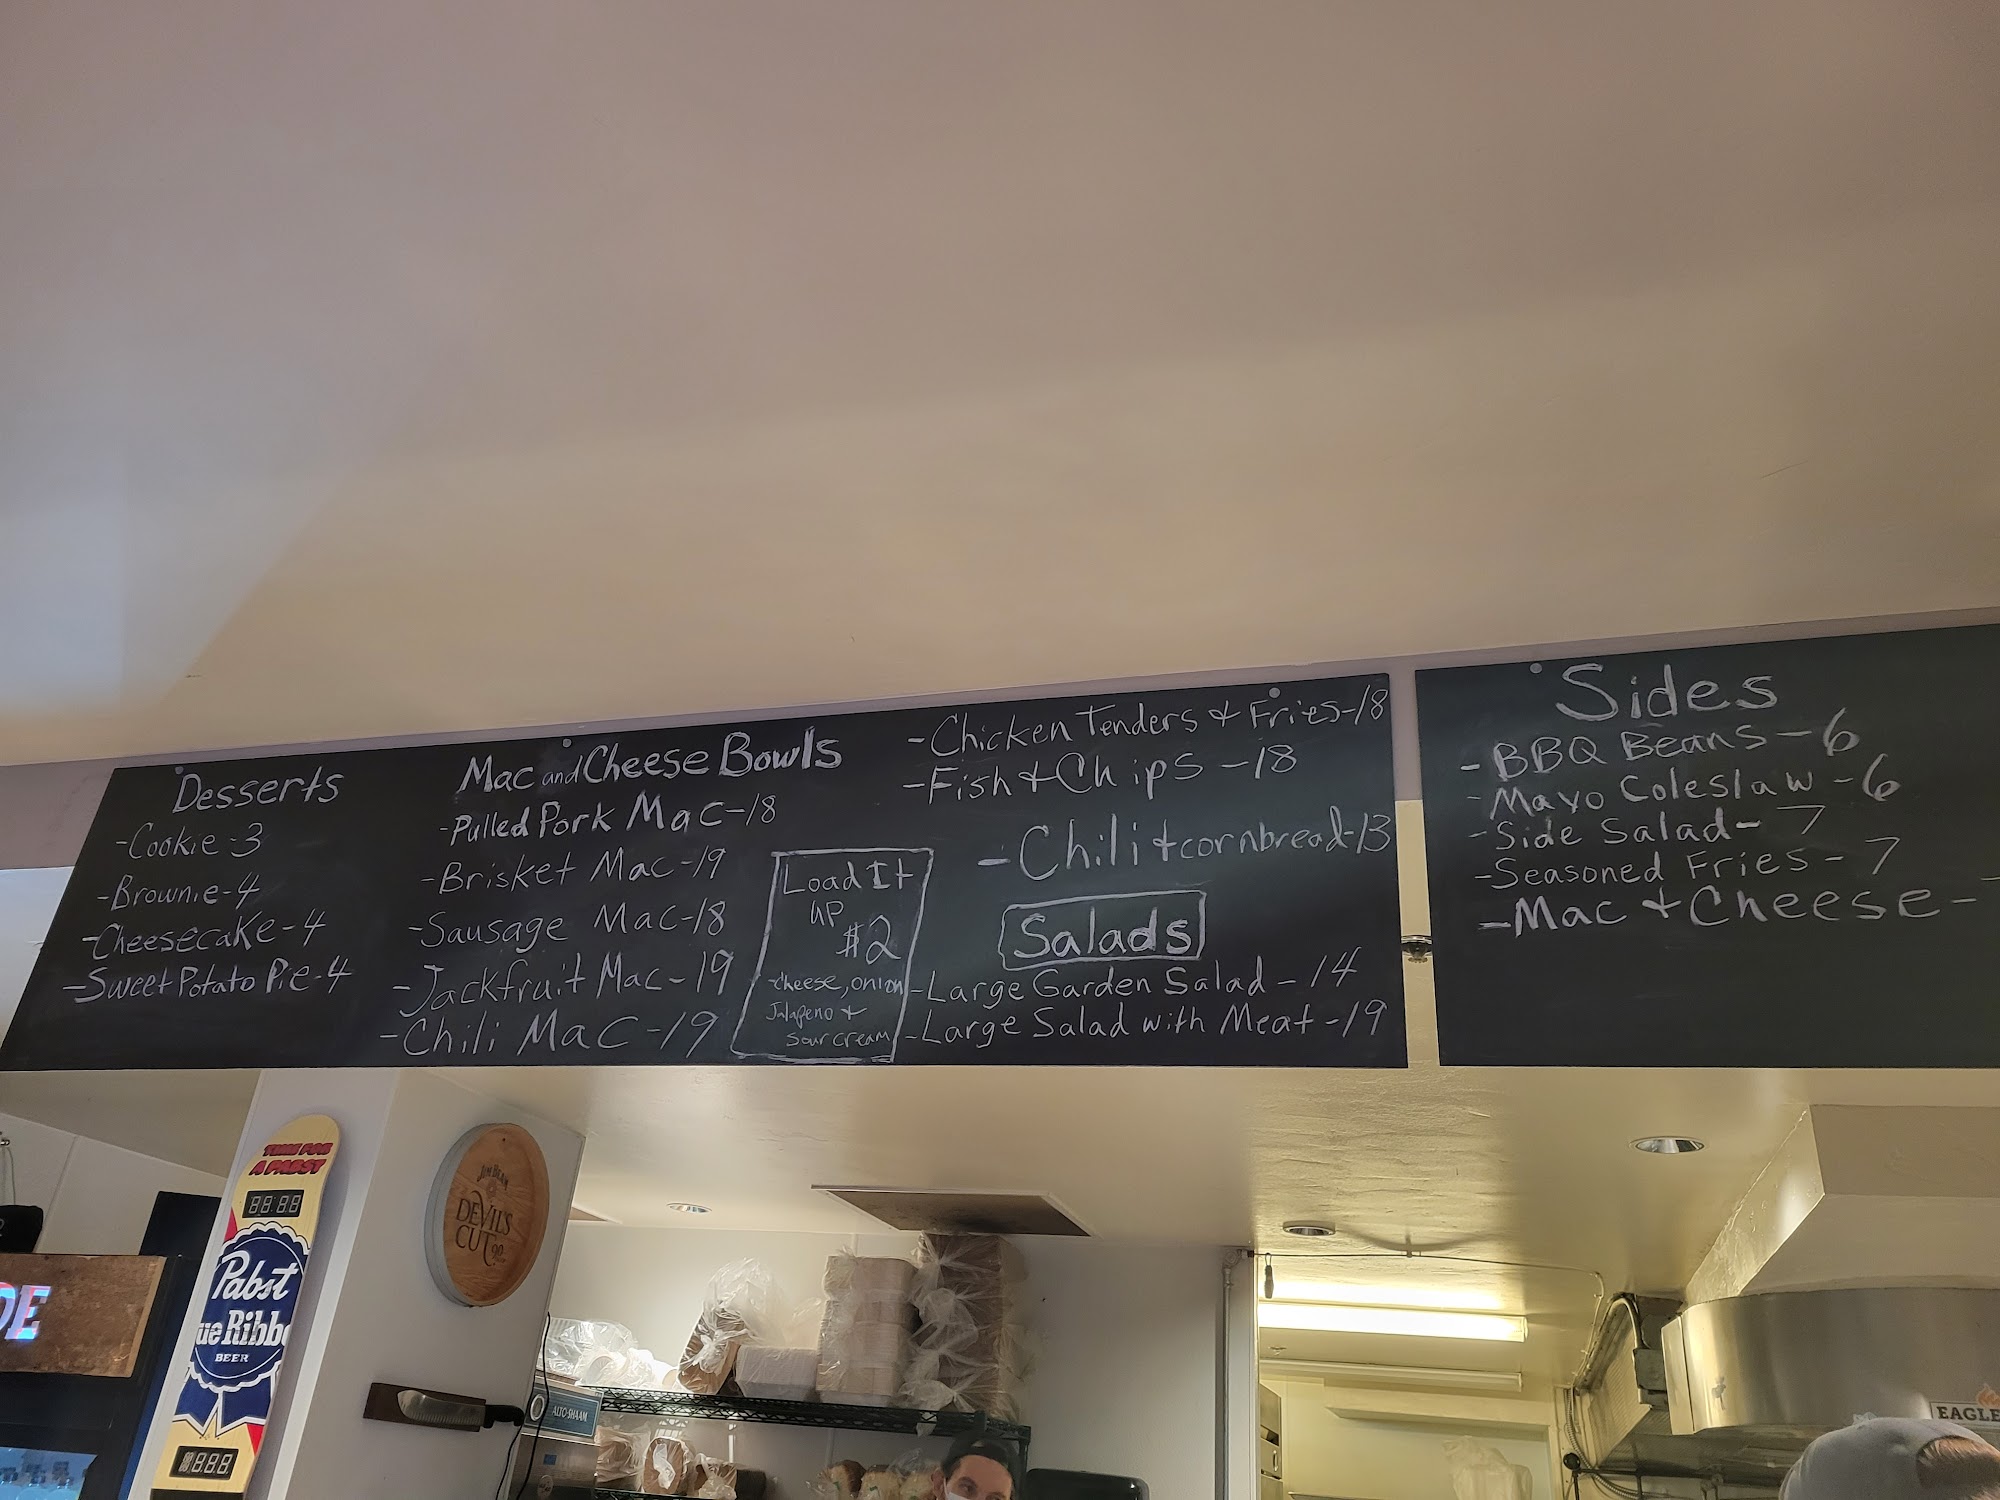 Desserts
-Cookie-3
-Brownie-4
-Cheesecake-4
-Sweet Potato Pie-4
Mac and Cheese Bowls
-Pulled Pork Mac-18
-Brisket Mac-19
-Sausage Mac-18
-Jackfruit Mac-19
-Chili Mac-19
Load It
up
$2
-cheese, onion
Jalapeno +
sour cream
-Chicken Tenders & Fries-18
-Fish + Chips-18
-Chili + cornbread-13
Salads
-Large Garden Salad-14
-Large Salad with Meat-19
Sides
-BBQ Beans-6
-Mayo Coleslaw-6
-Side Salad-7
-Seasoned Fries-7
-Mac + Cheese-
TIME FOR
A PABST
88:88
Pabst
ue Ribb
BEER
JIM BEAM
DEVIL'S
CUT
90
DE
ALTO-SHAAM
EAGLE